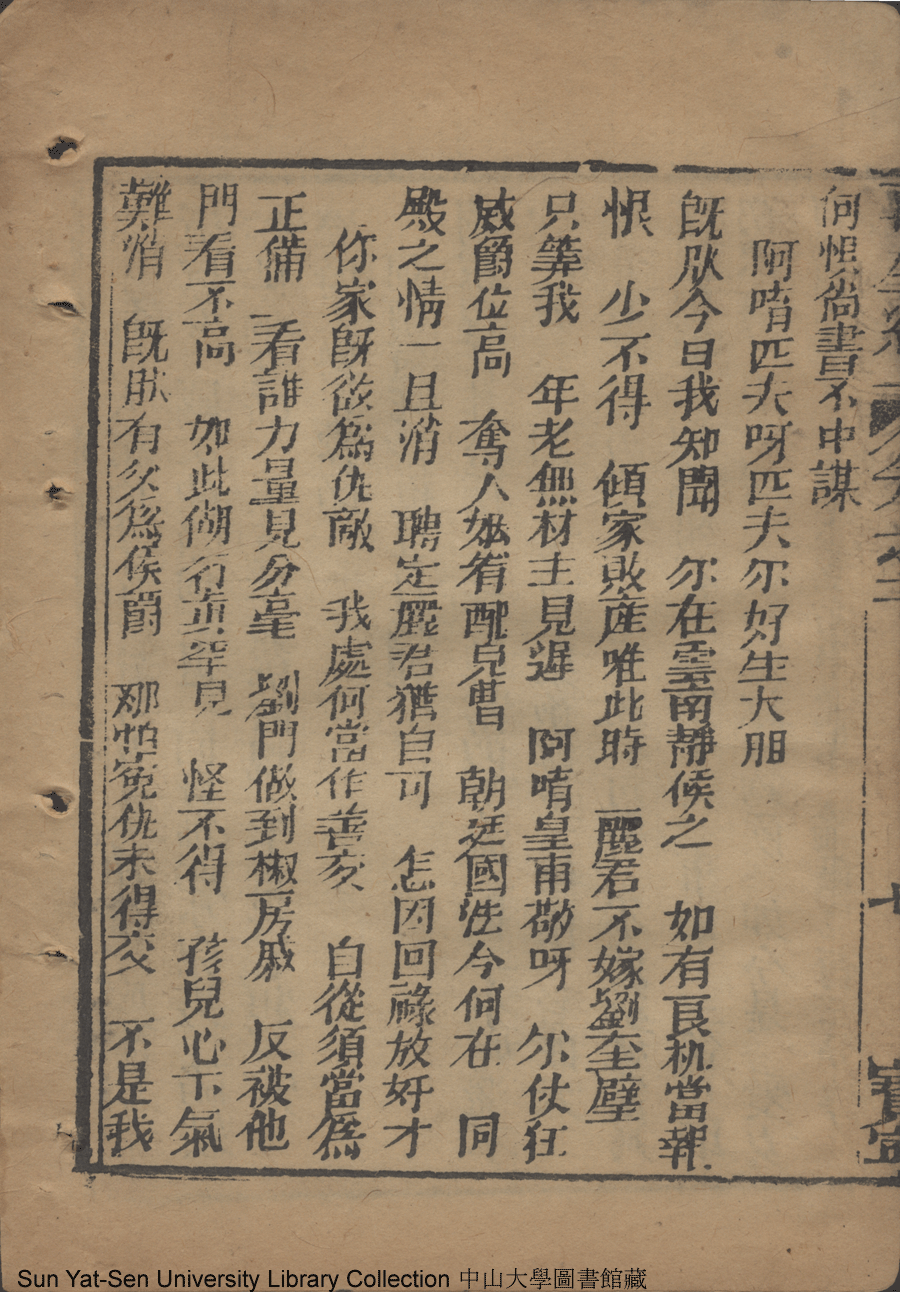 何恨尚書不中謀
阿唷匹夫呀匹夫尔好生大胆
既肰今日我知聞 尔在雲南靜候之 如有良机當報
恨 少不得 傾家敗産唯此時 麗君不嫁劉奎璧
只筭我 年老無材主見遲 阿唷皇甫敬呀 尔仗狂
威爵位高 奪人婚宥配兒曹 朝廷國法今何在 同
殿之情一旦消 聘定麗君猶自可 怎因回祿放奸才
你家既欲爲仇敵 我處何當作善交 自從須當爲
正備 看誰力量見分毫 劉門做到椒房戚 反被他
門看不高 如此俰行真罕見 怪不得 孩兒心下氣
難消 既肰有久爲侯爵 那怕寃仇未得交 不是我
七
Sun Yat-Sen University Library Collection 中山大學圖書館藏